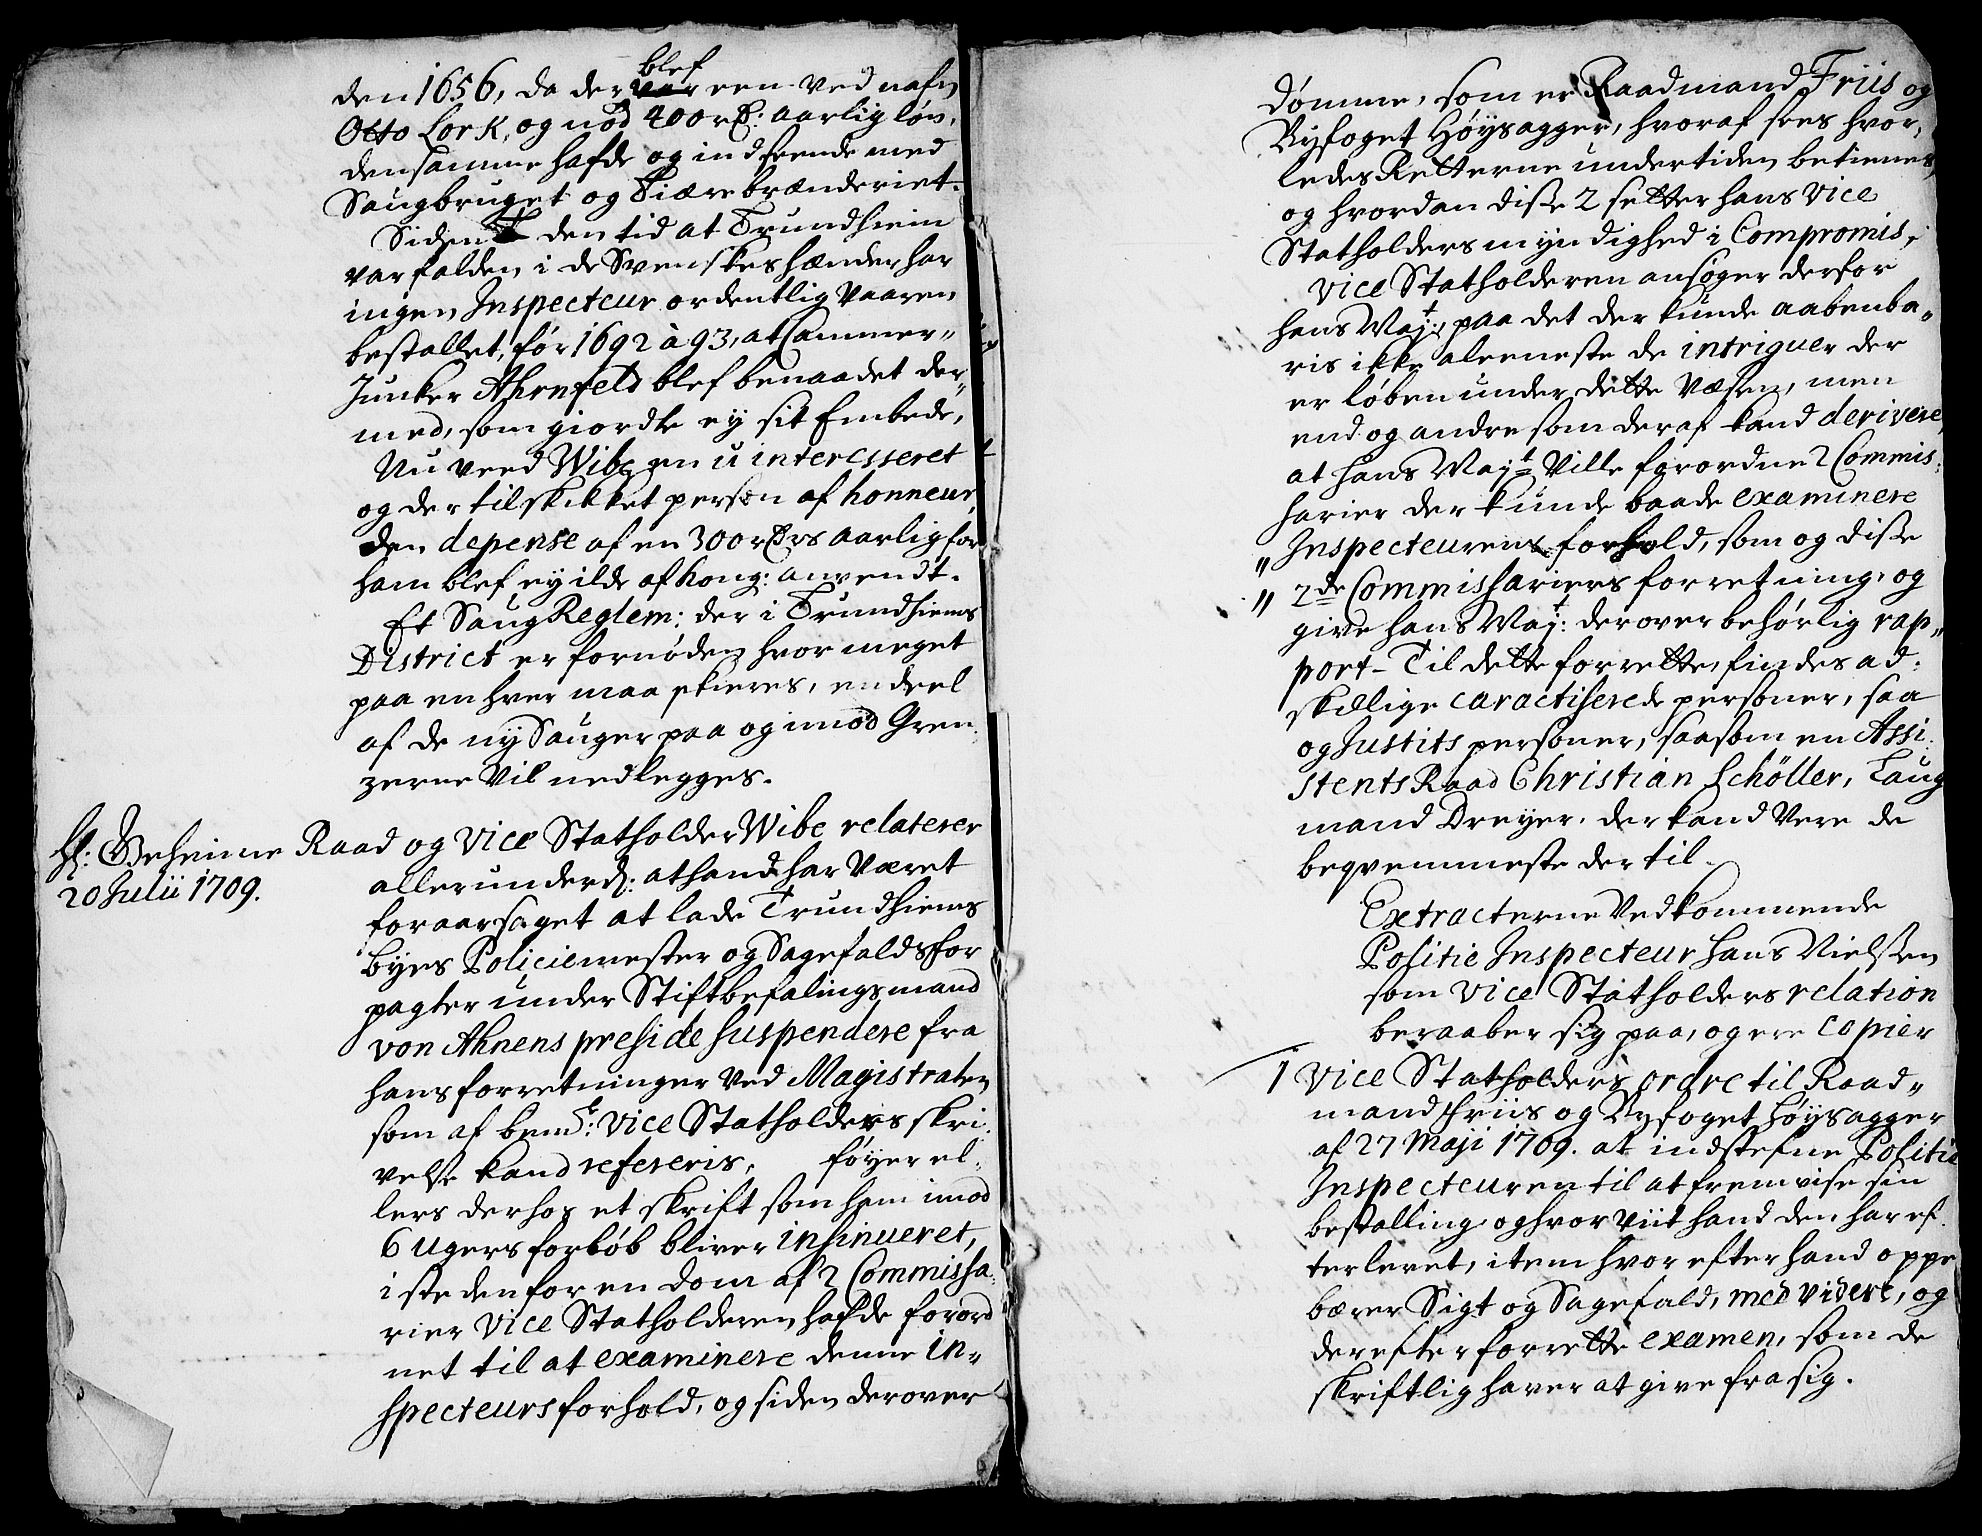 den 1656, da der blef een ved nafn
Otto Lork, og nød 400 rd: aarlig løn,
den samme hafde og indseende med
Saugbruget og Tiærebrænderiet.
Siden den tid at Trundhiem
var falden i de Svenskes hænder har
ingen Inspecteur ordentlig vaaren
bestallet, før 1692 à 93, at Cammer„
Juncker Ahrnfeld blef benaadet der„
med, som giorde ey sit Embede,
Nu veed Wibe en uinteresseret
og der til skikket person af honneur,
den depense af en 300 rdrs aarlig for
ham blef ey ilde af Kong: anvendt.
Et Saug Reglem: der i Trundhiems
District er fornøden hvor meget
paa en hver maa skieres, en deel
af de ny Sauger paa og imod Gren„
zerne vil nedlegges.
Hr: Geheime Raad og Vice Statholder Wibe relaterer
20 Julii 1709.
allerunderd: at hand har været
foraarsaget at lade Trundhiems
Byes Policiemester og Sagefaldsfor
pagter under Stiftbefalingsmand
von Ahnens preside suspendere fra
hans forretninger ved Magistraten
som af bemte: Vice Statholders skri„
velse kand refereris, føyer el„
lers derhos et skrift som ham imod
6 ugers forløb bliver insinueret,
i steden for en dom af 2 Commissa„
rier Vice Statholderen hafde forord
net til at examinere denne In„
specteurs forhold, og siden derover
dømme, som er Raadmand Friis og
Byfoget Høysagger, hvoraf sees hvor„
ledes Retterne undertiden betienes,
og hvordan disse 2 setter hans Vice
Statholders myndighed i Compromis,
Vice Statholderen ansøger derfor
hans Majt:, paa det der kunde aabenba„
ris ikke aleeneste de intriguer der
er løben under dette Væsen, men
end og andre som deraf kand derivere,
at hans Majt ville forordne 2 Commis„
sarier der kunde baade examinere
„ Inspecteurens forhold, som og disse
„ 2de Commissariers forretning, og
give hans Majt: derover behørlig rap„
port. Til dette forrette, findes ad„
skillige caractiserede personer, saa
og Justits personer, saasom en Assi„
stents Raad Christian Schöller, Laug
mand Dreyer, der kand vere de
beqvemmeste der til.
Extracterne vedkommende
Politie Inspecteur Hans Nielssen
som Vice Statholders relation
beraaber sig paa, og ere copier
1 Vice Statholders ordre til Raad„
mand Friis og Byfoget Høysagger
af 27 Maji 1709. at indstefne Politie
Inspecteuren til at fremvise sin
bestalling og hvor viit hand den har ef„
terlevet, item hvor efter hand oppe
bærer Sigt og Sagefald, med videre, og
derefter forrette examen, som de
skriftlig haver at give fra sig.